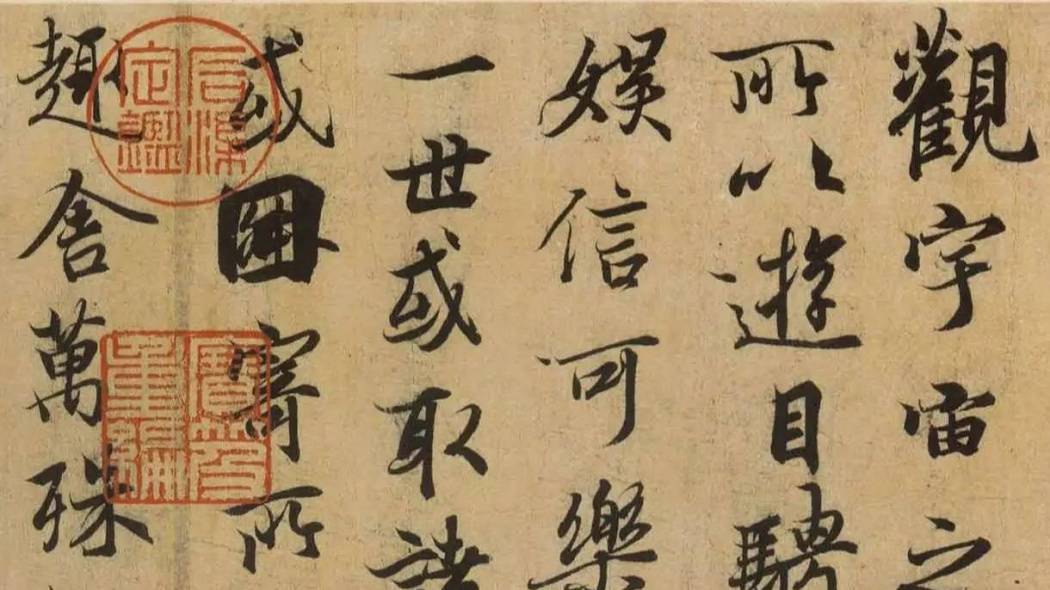 觀宇宙之
所以遊目騁
娛信可樂
一世或取諸
或因寄所
趣舍萬殊
石渠定鑑
寶笈重編